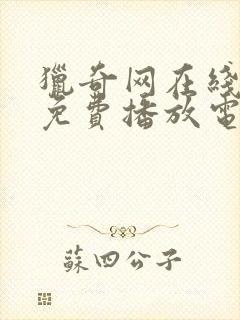 獵奇网在綫
免費播放電
蘇四公子